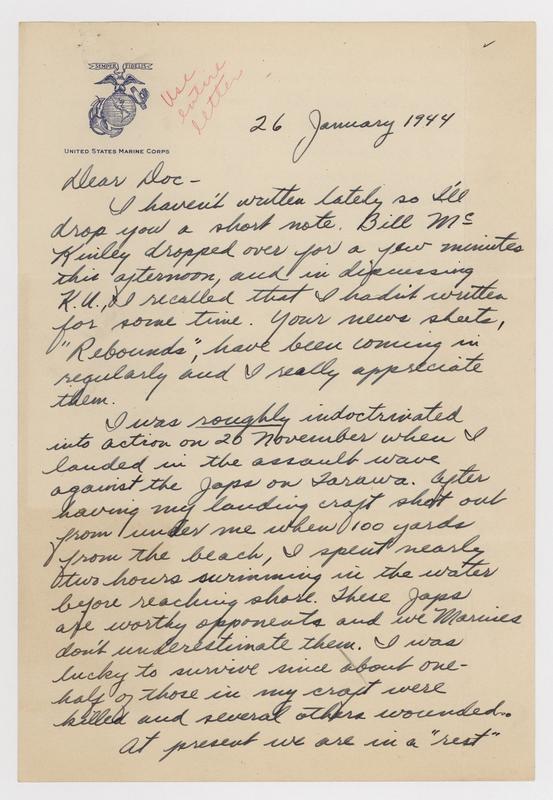 SEMPER FIDELIS
UNITED STATES MARINE CORPS
Use
entire
letter
26 January 1944
Dear Doc-
I haven't written lately so I'll
drop you a short note. Bill Mc
Kinley dropped over for a few minutes
this afternoon, and in discussing
K.U., I recalled that I hadn't written
for some time. Your news sheets,
"Rebounds", have been coming in
regularly and I really appreciate
them.
I was roughly indoctrinated
into action on 20 November when I
landed in the assault wave
against the Japs on Tarawa. After
having my landing craft shot out
from under me when 100 yards
from the beach, I spent nearly
two hours swimming in the water
before reaching shore. These Japs
are worthy opponents and we Marines
don't underestimate them. I was
lucky to survive since about one-
half of those in my craft were
killed and several others wounded..
At present we are in a "rest"